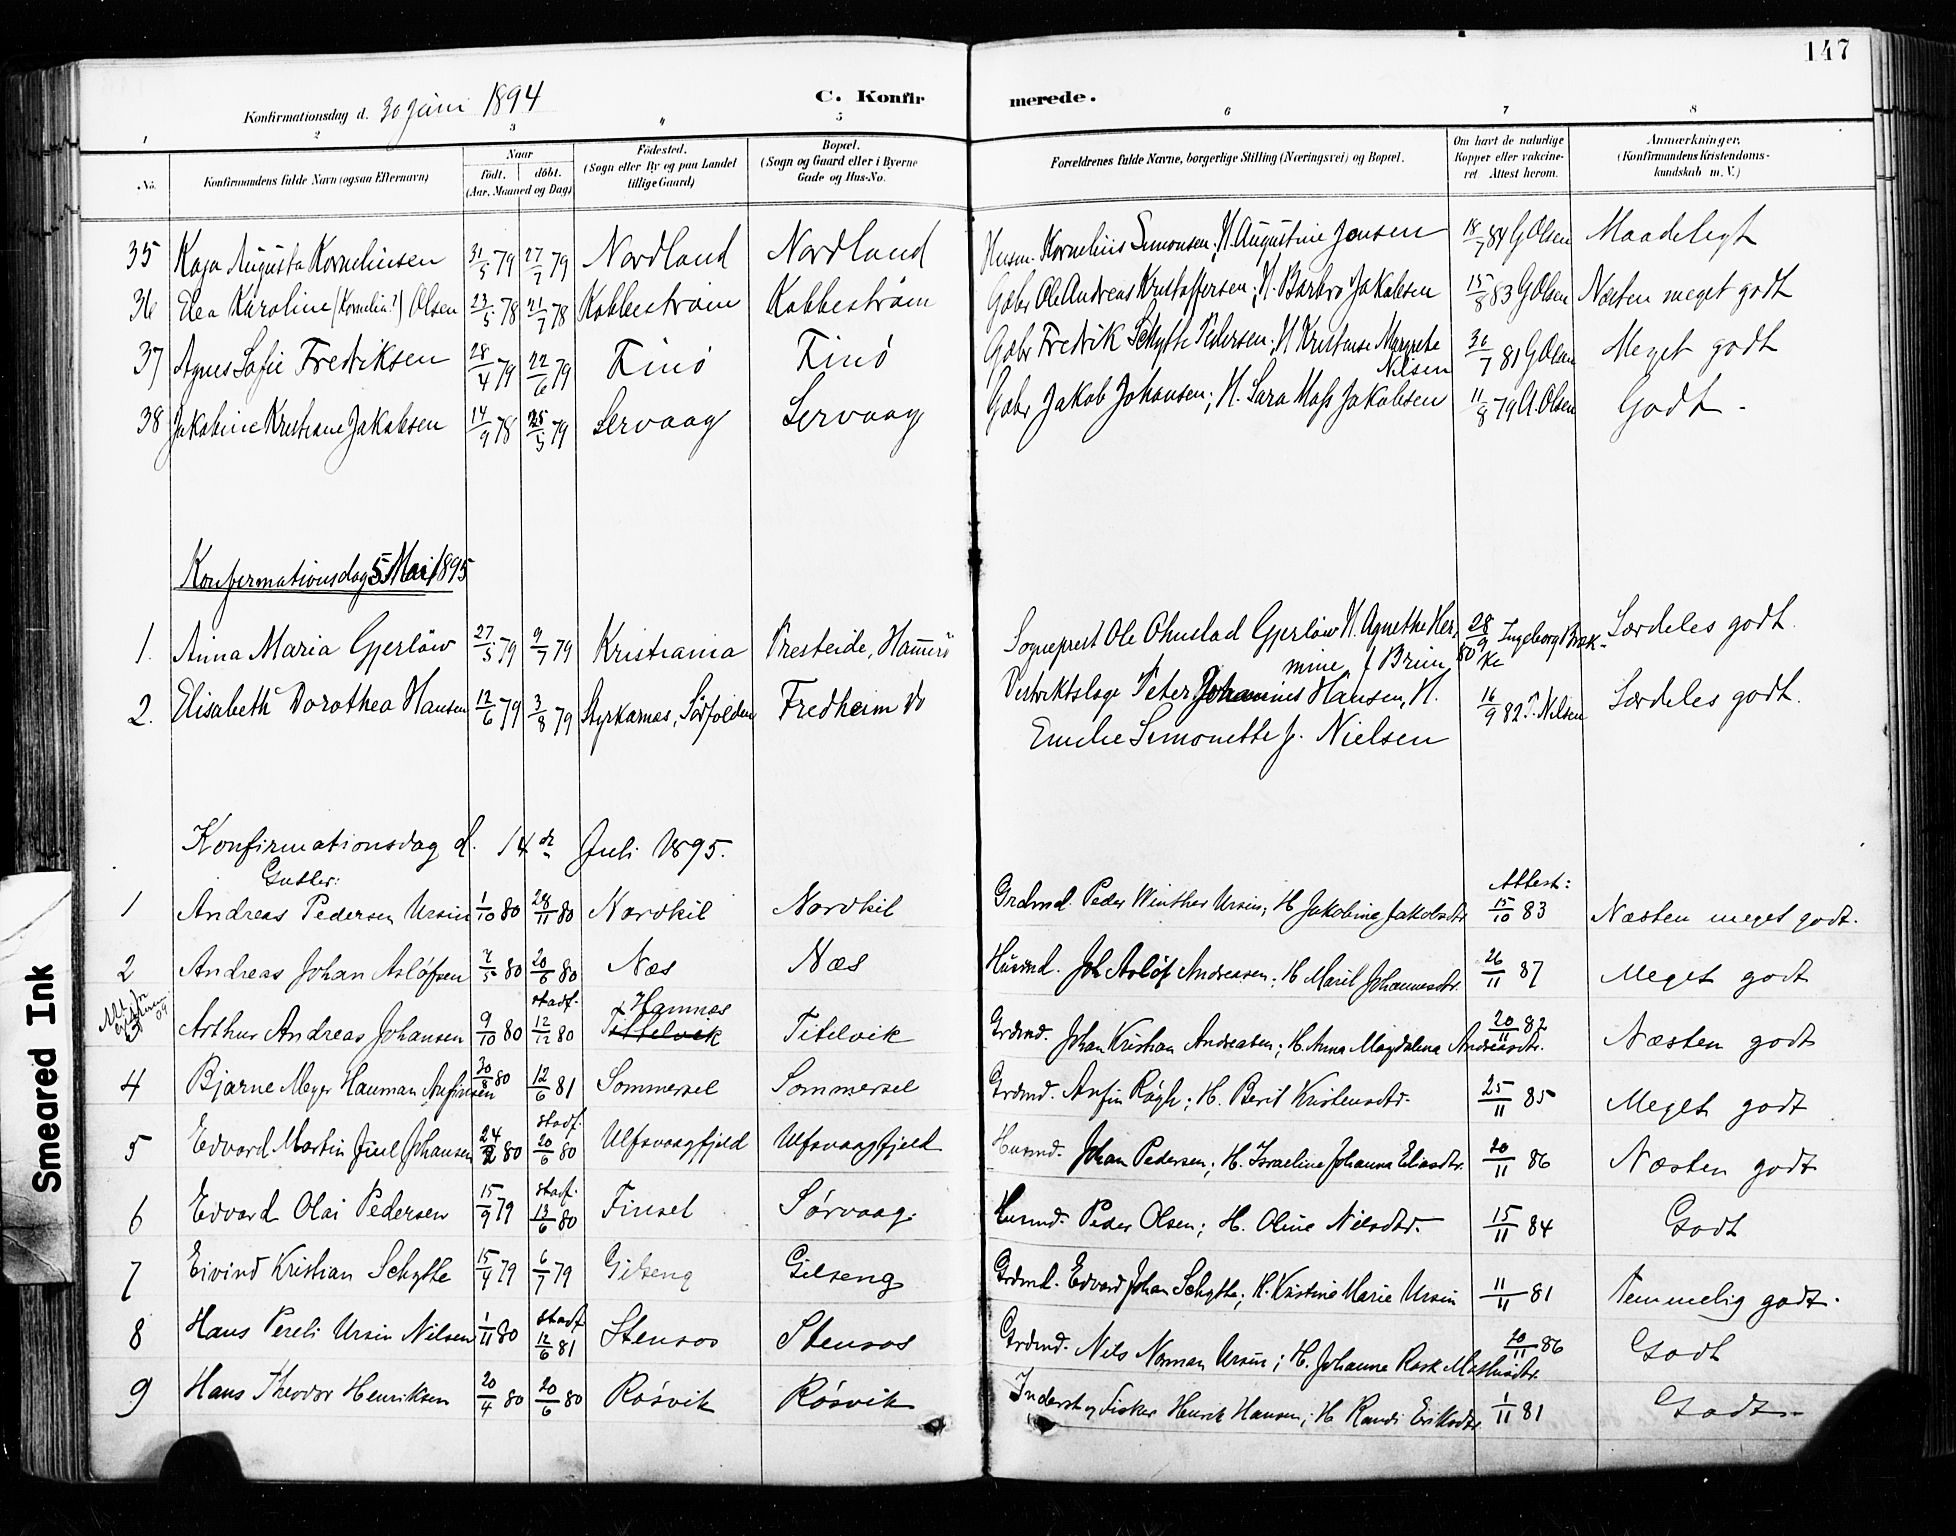 147
Konfirmationsdag d. 30 Juni 1894 C. Konfirmerede.
1 2 3 4 5 6 7 8
No. Konfirmandens fulde Navn (ogsaa Efternavn) Naar födt. döbt. (Aar, Maaned og Dag) Födested. (Sogn eller By og paa Landet tillige Gaard) Bopæl. (Sogn og Gaard eller i Byerne Gade og Hus-No. Forældrenes fulde Navne, borgerlige Stilling (Næringsvei) og Bopæl. Om havt de naturlige Kopper eller vakcineret Attest herom. Anmærkninger. (Konfirmandens Kristendomskundskab m. V.)
35 Kaja Augusta Kornelinsen 31/5 79 27/7 79 Nordland Nordland Husm. Kornelius Simonsen; H. Augustine Jensen 18/7 84 G Olsen Maadeligt
36 Elea Karoline (Kornelia?) Olsen 23/5 78 21/7 78 Kobbeström Kobbeström Gbr Ole Andreas Kristoffersen; H. Barbro Jakobsen 15/8 83 G Olsen Næsten meget godt
37 Agnes Sofie Fredriksen 28/4 79 22/6 79 Finö Finö Gbr Fredrik Schytte Pedersen; H Kristense Margrete
Nilsen 30/7 81 G Olsen Meget godt
38 Jakobine Kristiane Jakobsen 14/9 78 25/5 79 Servaag Servaag Gbr Jakob Johansen; H. Sara Mass Jakobsen 11/8 79 A. Olsen Godt.
Konfirmationsdag 5 Mai 1895
1. Anna Maria Gjerløw 27/5 79 9/7 79 Kristiania Presteide, Hammerö Sogneprest Ole Gjerløw H. Agnethe Her-
mine f Bruun 28/9 80 Ingeborg Særdeles godt.
2. Elisabeth Dorothea Hansen 12/6 79 3/8 79 Styrkesnes, Sörfolden Fredheim Do Distriktslæge Peter Johannes Hansen, H.
Emilie Simonette f. Nielsen 16/9 82 P. Nilsen Særdeles godt.
Konfirmationsdag d. 14de Juli 1895.
Gutter: Attest:
1 Andreas Pedersen Ursin 1/10 80 28/11 80 Nordkil Nordkil Grdmd. Peder Winther Ursin; H Jakobine Jakobsdtr 15/10 83 Næsten meget godt.
2 Andreas Johan Asløfsen 4/5 80 20/6 80 Næs Næs Husmd. Joh Asløf Andreasen; H Marit Johannesdtr. 26/11 87 Meget godt
3 Arthur Andreas Johansen 9/10 80 stadf. 12/12 80 Hamnes Tittelvik Titelvik Grdmd. Johan Kristian Andreasen; H. Anna Magdalena Andreasdtr. 20/11 82 Næsten godt
4 Bjarne Meyer Hauman Anfinsen 30/8 80 12/6 81 Sommersel Sommersel Grdmd. Anfin Røgh; H. Berit Kristensdtr. 25/11 85 Meget godt
5 Edvard Martin Juel Johansen 24/2 80 stadf. 20/6 80 Ulfsvaagfjeld Ulfsvaagfjeld Husmd. Johan Pedersen; H. Israeline Johanna Eliasdtr. 20/11 86 Næsten godt
6 Edvard Olai Pedersen 15/9 79 stadf. 13/6 80 Finset Sørvaag. Husmd. Peder Olsen; H. Oline Nilsdtr. 15/11 84 Godt
7 Eivind Kristian Schytte 15/4 79 6/7 79 Gilseng Gilseng Grdmd. Edvard Johan Schytte; H. Kristine Marie Ursin 11/11 81 Temmelig godt.
8 Hans Pereli Ursin Nilsen 1/11 80 stadf 12/6 81 Stensos Stensos Grdmd. Nils Norman Ursin; H. Johanna Rask Mathisdtr. 20/11 86 Godt
9 Hans Theodor Henriksen 20/4 80 20/6 80 Røsvik Røsvik Inderst og Fisker Henrik Hansen; H Randi Eriksdtr. 1/11 81 Godt.
Smeared Ink